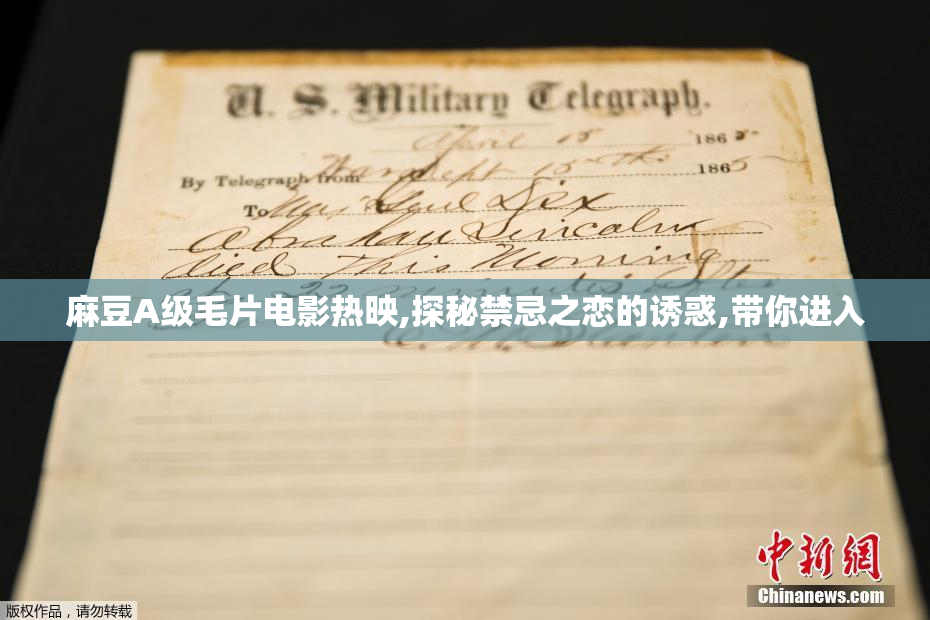 U. S. Military Telegraph.
April 15 1865
By Telegraph from War Dept 15th 1865
To Maj Genl Dix
Abraham Lincoln
died This Morning
at 22 minutes after
麻豆A级毛片电影热映,探秘禁忌之恋的诱惑,带你进入
E. M. Stanton
中新网
Chinanews.com
版权作品，请勿转载